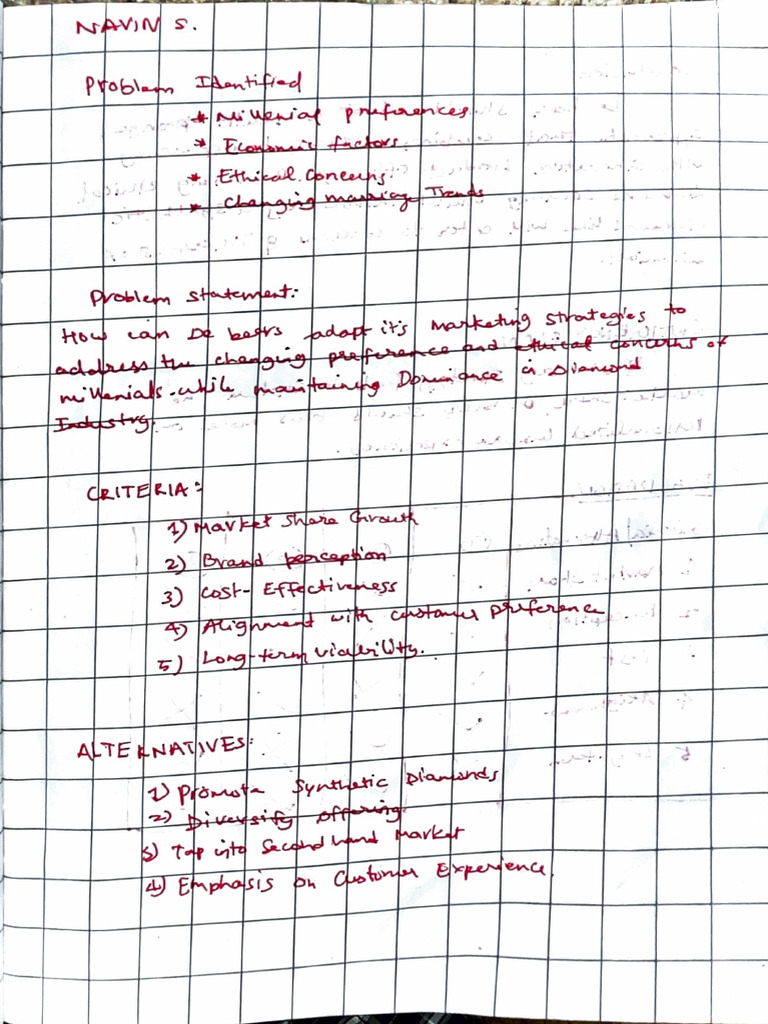 NAVIN S.
Problem Identified
* Millenial preferences
* Economic factors
* Ethical Concerns
* Changing marriage Trends
Problem statement:
How can De beers adapt it's marketing strategies to
address the changing preference and ethical concerns of
millenials while maintaining Dominance in Diamond
Industry.
CRITERIA:
1) Market Share Growth
2) Brand perception
3) Cost-Effectiveness
4) Alignment with customer preference
5) Long-term viability.
ALTERNATIVES:
1) Promote Synthetic Diamonds
2) Diversify offering
3) Tap into Second hand Market
4) Emphasis on Customer Experience.